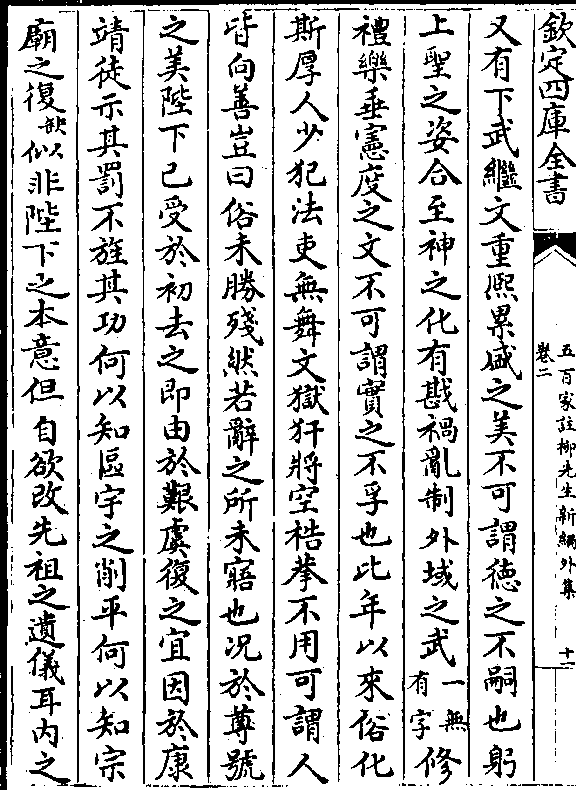 欽定四庫全書
五百家註柳先生新編外集
卷二
十一
又有下武繼文重熈累盛之美不可謂德之不嗣也躬
上聖之姿合至神之化有戡禍亂制外域之武一無有字修
禮樂垂憲度之文不可謂實之不孚也比年以來俗化
斯厚人少犯法吏無舞文獄犴將空梏拲不用可謂人
皆向善豈曰俗未勝殘然若辭之所未寤也况於尊號
之美陛下已受於初去之即由於艱虞復之宜因於康
靖徒示其罰不旌其功何以知區宇之削平何以知宗
廟之復缺似非陛下之本意但自欲改先祖之遺儀耳内之